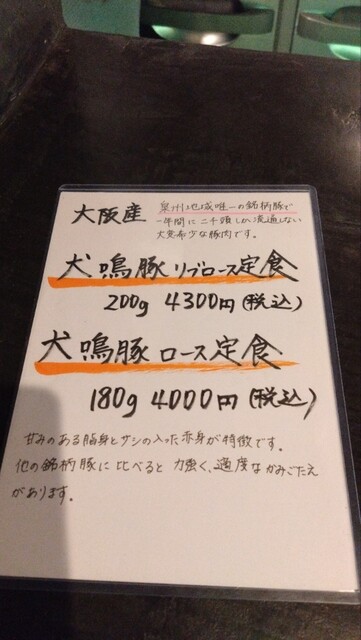 大阪産
泉州地域唯一の銘柄豚で
一年間に二千頭しか流通しない
大変希少な豚肉です。
犬鳴豚リブロース定食
200g 4300円(税込)
犬鳴豚 ロース定食
180g 4000円(税込)
甘みのある脂身とサシの入った赤身が特徴です。
他の銘柄豚に比べると 力強く、適度なかみごたえ
があります。